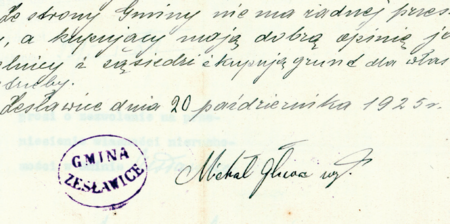 Ze strony Gminy nie ma żadnej przes
, a kupujący mają dobrą opinię je
lnicy i sąsiedzi i kupują grund dla włas
Zesławice dnia 20 października 1925 r.
GMINA
ZESŁAWICE
Michał